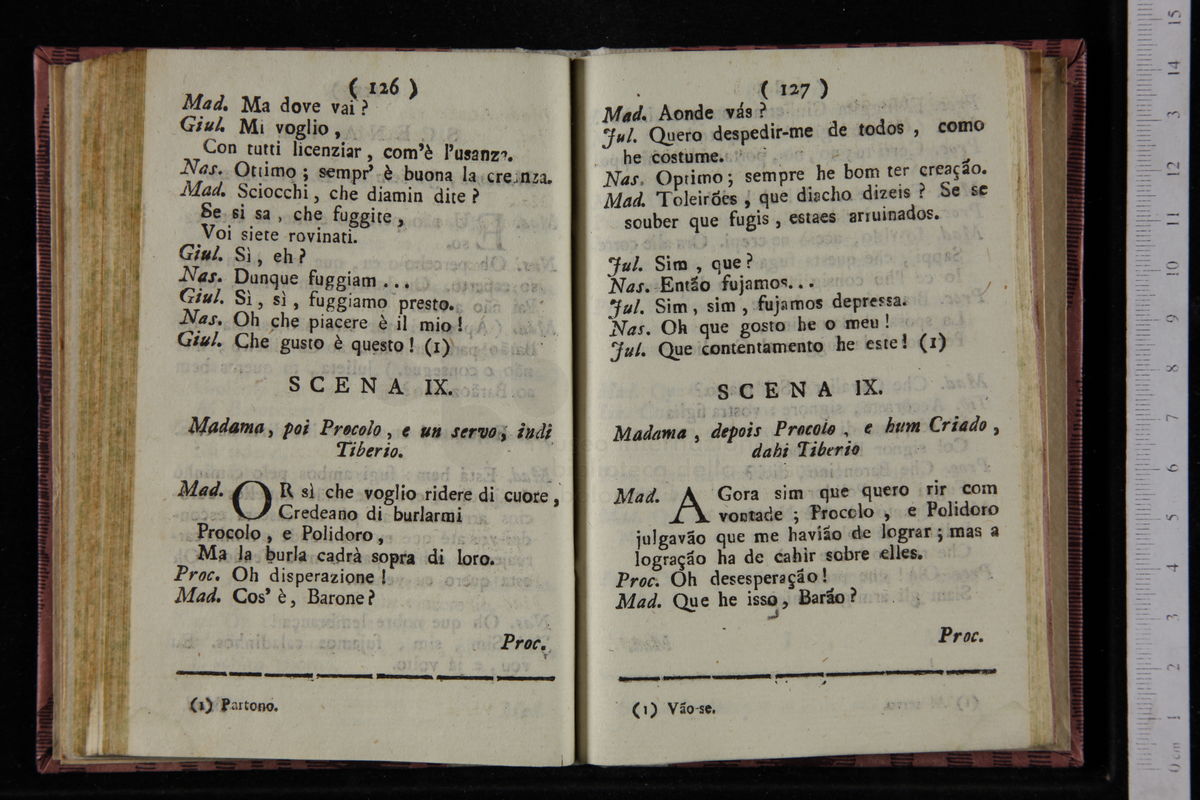 ( 126 )
Mad. Ma dove vai ?
Giul. Mi voglio ,
Con tutti licenziar , com'è l'usanza.
Nas. Ottimo ; sempr' è buona la creanza.
Mad. Sciocchi , che diamin dite ?
Se si sa , che fuggite ,
Voi siete rovinati.
Giul. Sì , eh ?
Nas. Dunque fuggiam . . .
Giul. Sì , sì , fuggiamo presto.
Nas. Oh che piacere è il mio !
Giul. Che gusto è questo ! (1)
SCENA IX.
Madama , poi Procolo , e un servo , indi
Tiberio.
Mad. OR sì che voglio ridere di cuore ,
Credeano di burlarmi
Procolo , e Polidoro ,
Ma la burla cadrà sopra di loro.
Proc. Oh disperazione !
Mad. Cos' è , Barone ?
Proc.
(1) Partono.
( 127 )
Mad. Aonde vás ?
Jul. Quero despedir-me de todos , como
he costume.
Nas. Optimo ; sempre he bom ter creação.
Mad. Toleirões , que diacho dizeis ? Se se
souber que fugis , estaes arruinados.
Jul. Sim , que ?
Nas. Então fujamos. . .
Jul. Sim , sim , fujamos depressa.
Nas. Oh que gosto he o meu !
Jul. Que contentamento he este ! (1)
SCENA IX.
Madama , depois Procolo , e hum Criado ,
dahi Tiberio
Mad. AGora sim que quero rir com
vontade ; Procolo , e Polidoro
julgavão que me havião de lograr ; mas a
logração ha de cahir sobre elles.
Proc. Oh desesperação !
Mad. Que he isso , Barão ?
Proc.
(1) Vão-se.
0 cm 1 2 3 4 5 6 7 8 9 10 11 12 13 14 15